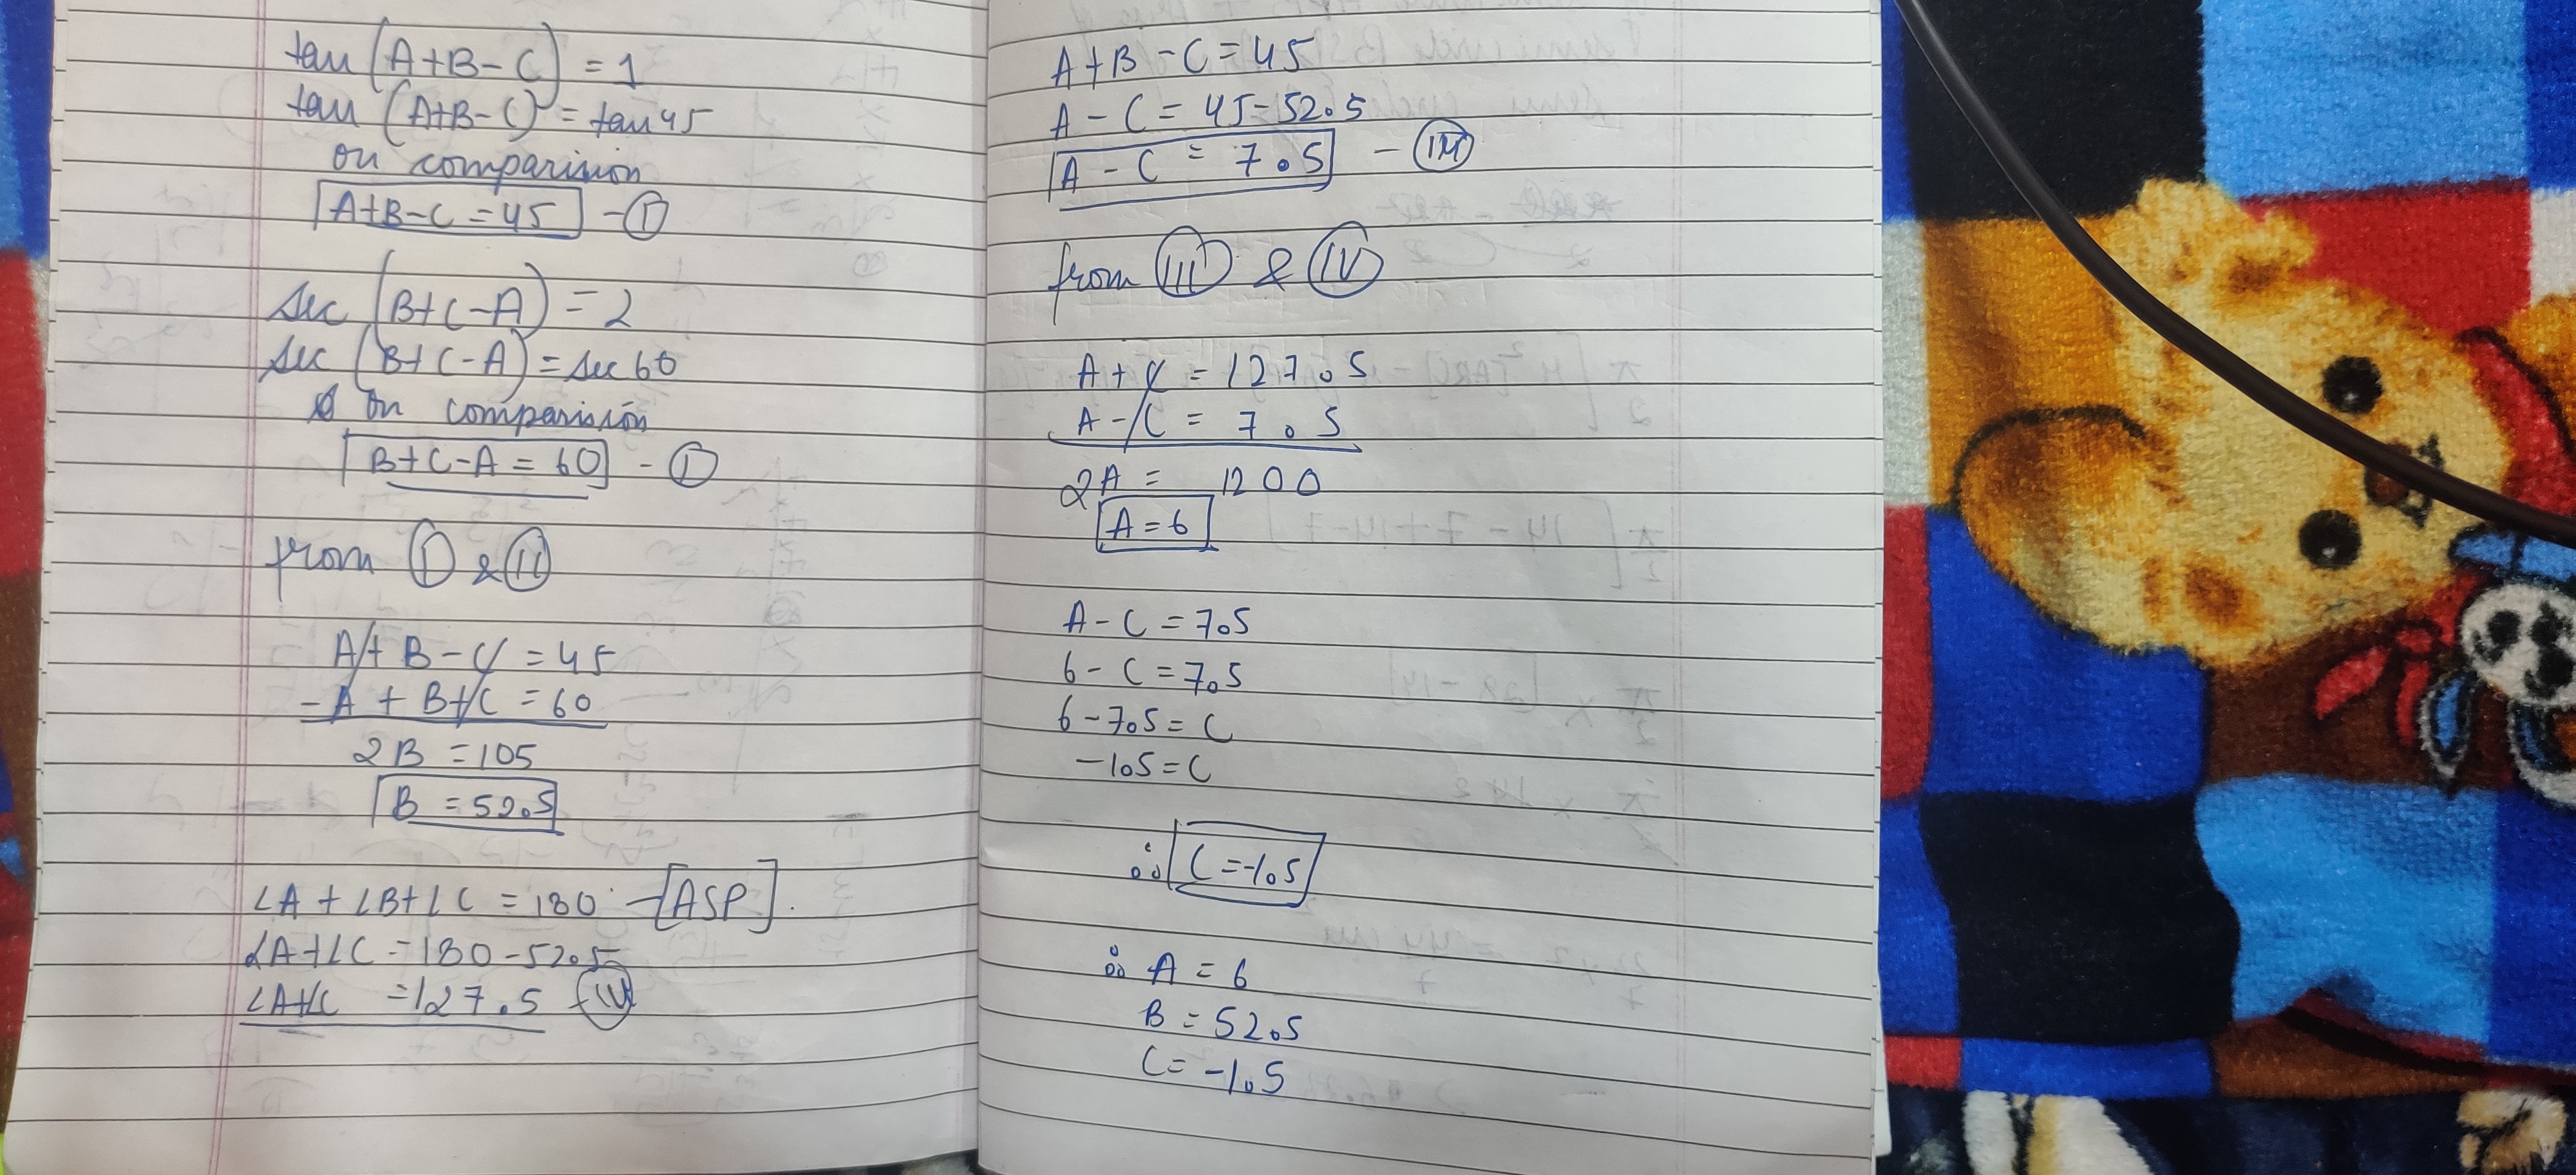 tan (A+B-C) = 1
tan (A+B-C) = tan 45
on comparision
A+B-C = 45 - I
sec (B+C-A) = 2
sec (B+C-A) = sec 60
on comparision
B+C-A = 60 - I
from I & II
A+B-C = 45
-A+B+C = 60
2B = 105
B = 52.5
∠A+∠B+∠C = 180 - [ASP].
∠A+∠C = 180-52.5
∠A+∠C = 127.5 - IV
A+B-C = 45
A-C = 45-52.5
A-C = 7.5 -
from III & IV
A+C = 127.5
A-C = 7.5
2A = 1200
A = 6
A-C = 7.5
6-C = 7.5
6-7.5 = C
-1.5 = C
∴ C = -1.5
∴ A = 6
B = 52.5
C = -1.5